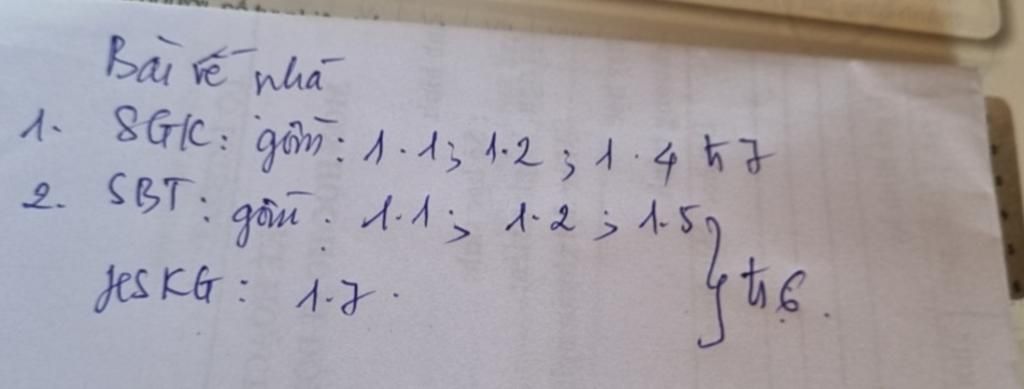 Bài về nhà
1. SGK: gồm: 1.1; 1.2; 1.4 tr 7
2. SBT: gồm: 1.1; 1.2; 1.5
HSKG: 1.7.
} tr 6.